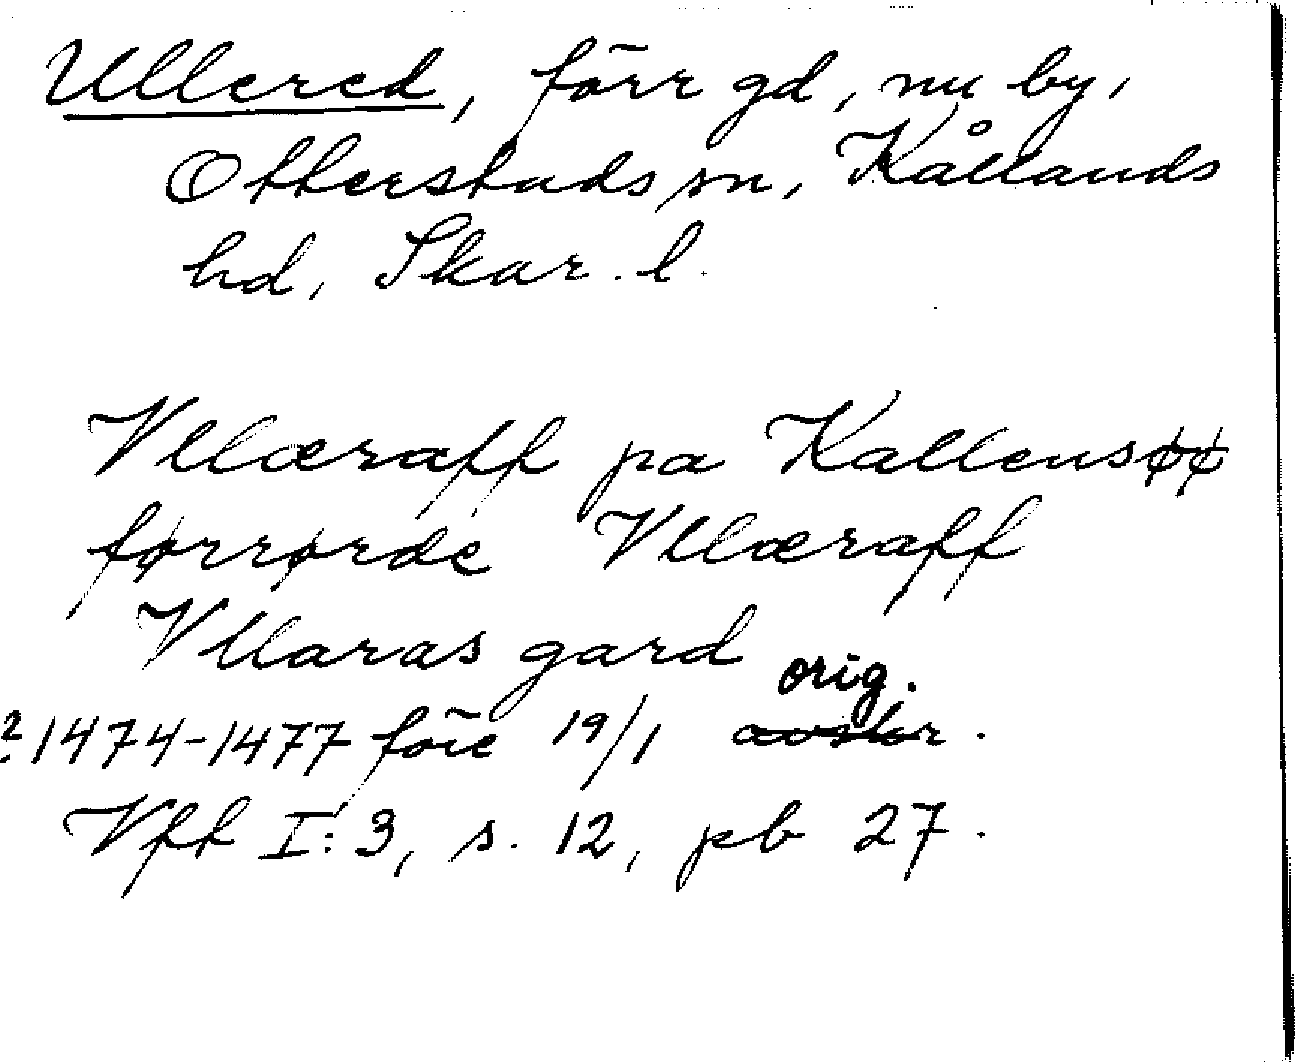 Ullered, förr gd, nu by,
Otterstads sn, Kållands
hd, Skar. l.
Vllæraff pa Kallensøø
førrørde Vllæraff
Vllaras gard
orig.
? 1474-1477 före 19/1 avskr.
Vff I:3, s. 12, pb 27.